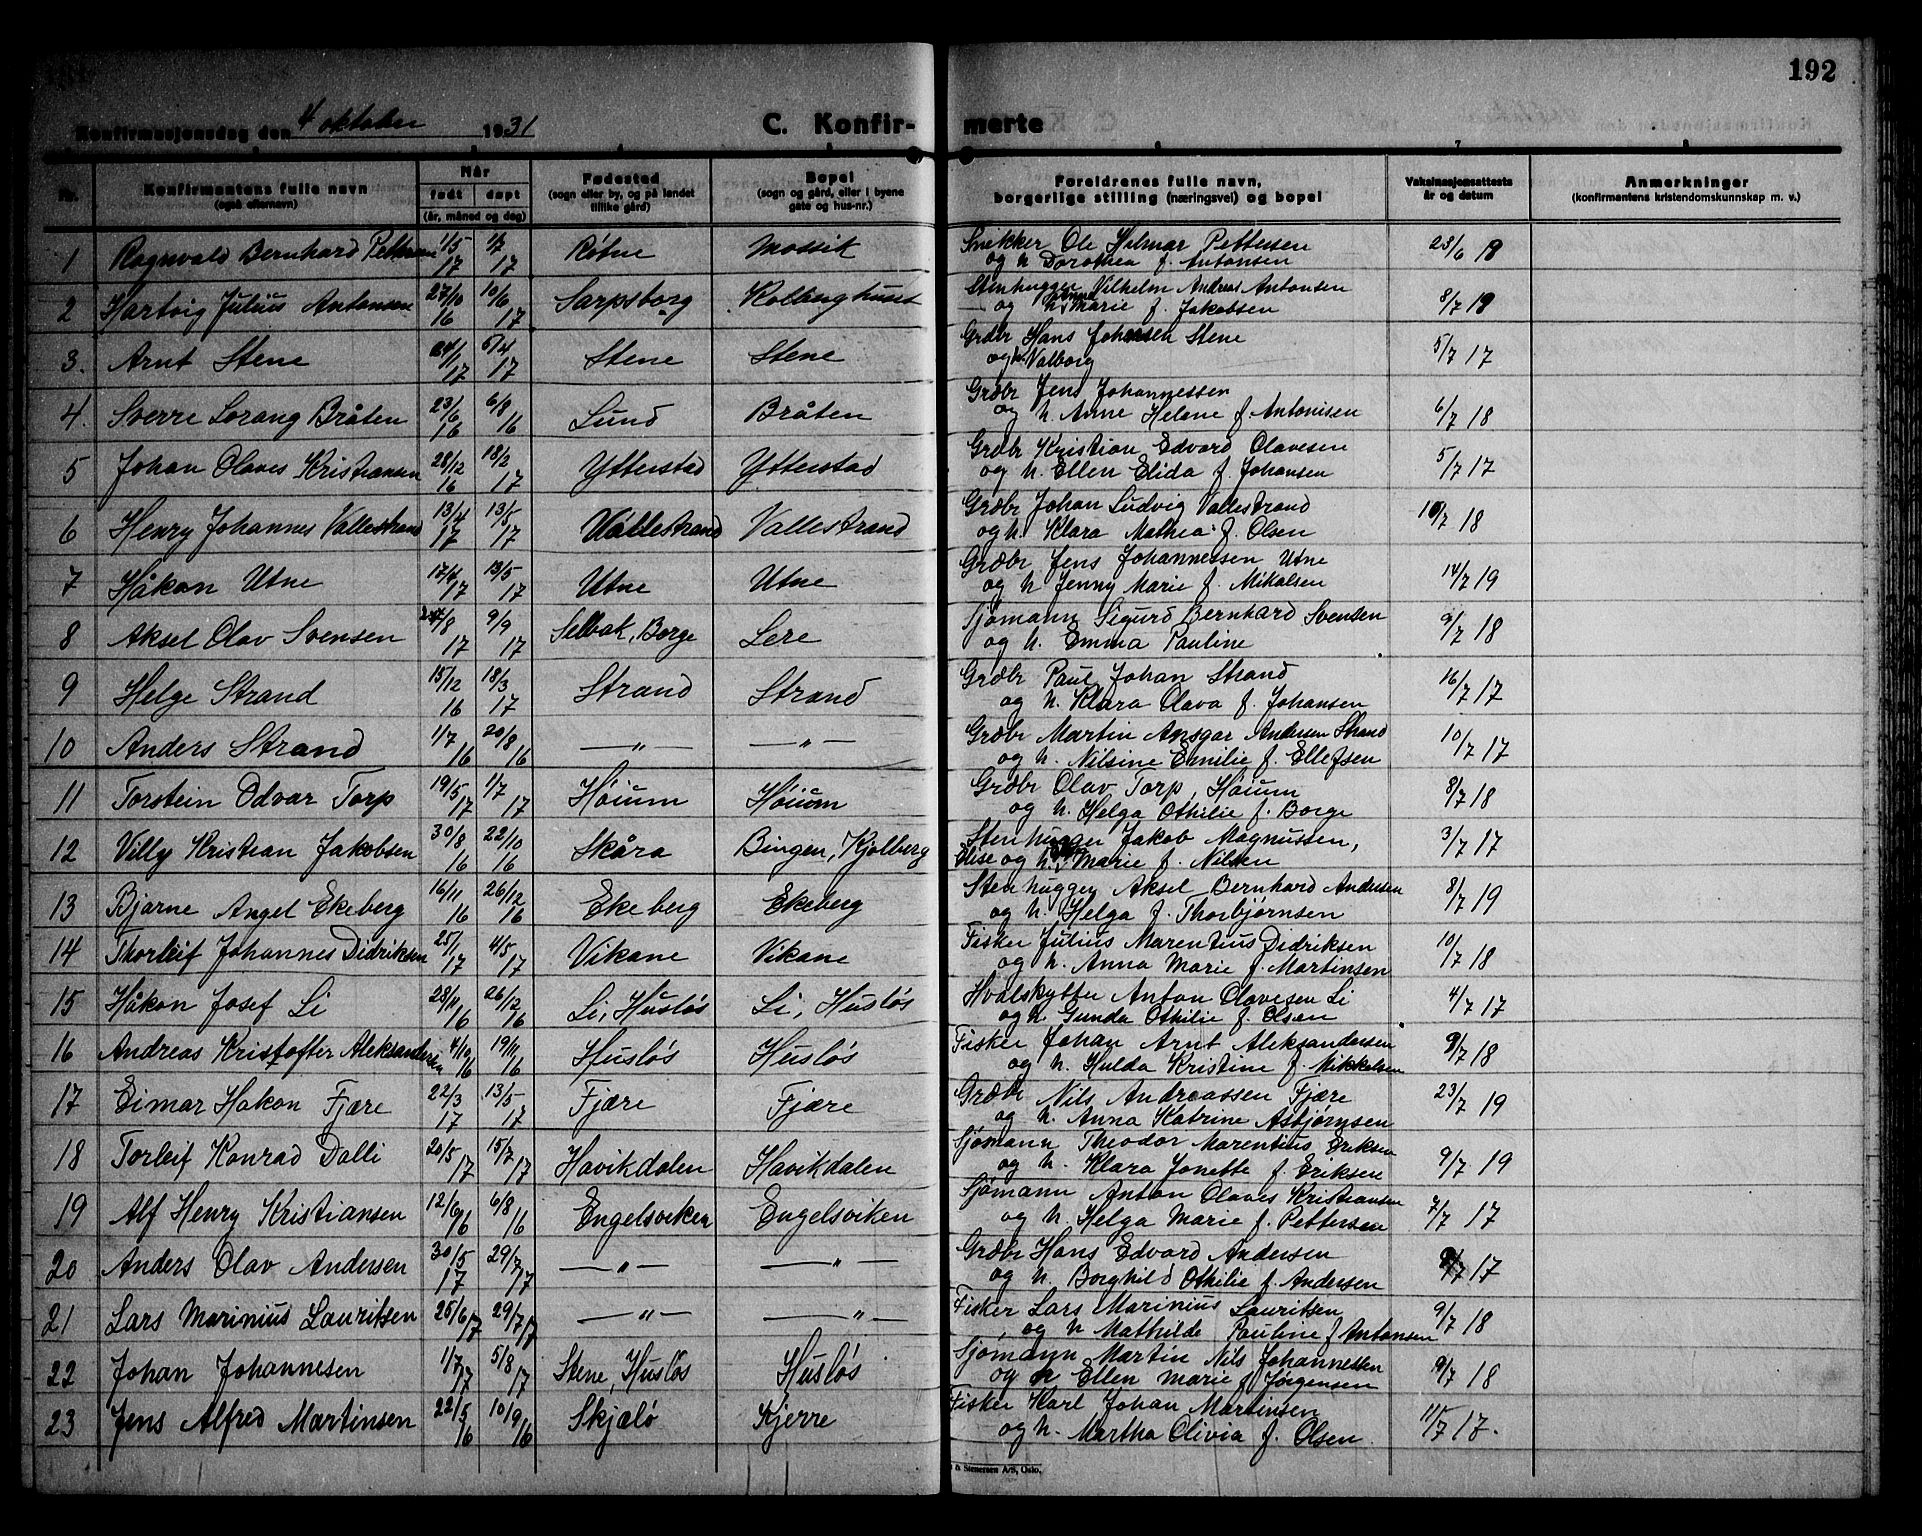 192
Konfirmasjonsdag den 4 oktober 1931
C. Konfir- merte
Nr.
Konfirmantens fulle navn
(også efternavn)
Når
født døpt
(år, måned og dag)
Fødested
(sogn eller by, og på landet
tillike gård)
Bopel
(sogn og gård, eller i byene
gate og hus-nr.)
Foreldrenes fulle navn,
borgerlige stilling (næringsvei) og bopel
Vaksinasjonsattests
år og datum
Anmerkninger
(konfirmantens kristendomskunnskap m. v.)
1 Ragnvald Bernhard Pettersen 1/5 17 1/7 17 Røtne Mossik Snekker Ole Hilmar Pettersen 23/6 18
og h Dorothea f. Antonsen
2 Hartvig Julius Antonsen 27/10 16 10/6 17 Sarpsborg Kollinghuset Stenhugger Vilhelm Andreas Antonsen 8/7 19
og h. Marie f. Jakobsen
3. Arnt Stene 24/1 17 5/4 17 Stene Stene Grdbr Hans Johansen Stene 5/7 17
og h. Valborg
4. Sverre Lorang Bråten 23/6 16 6/8 16 Lund Bråten Grdbr Jens Johannessen 6/7 18
og h. Anne Helene f. Antonisen
5 Johan Olaves Kristiansen 28/12 16 18/2 17 Ytterstad Ytterstad Grdbr Kristian Edvard Olavesen 5/7 17
og h. Ellen Elida f. Johansen
6 Henry Johannes Vallestrand 13/4 17 13/5 17 Vallestrand Vallestrand Grdbr Johan Ludvig Vallestrand 10/7 18
og h. Klara Mathea f. Olsen
7 Håkon Utne 17/4 17 13/5 17 Utne Utne Grdbr Jens Johannessen Utne 14/7 19
og h Jenny Marie f. Mikalsen
8 Aksel Olav Svensen 24/8 17 9/9 17 Selbak, Borge Lere Sjømann Sigurd Bernhard Svensen 9/7 18
og h. Emma Pauline
9 Helge Strand 15/12 16 18/3 17 Strand Strand Grdbr Paul Johan Strand 16/7 17
og h. Klara Olava f. Johansen
10 Anders Strand 1/7 16 20/8 16 —„— —„— Grdbr Martin Ansgar Andersen Strand 10/7 17
og h. Nilsine Emilie f. Ellefsen
11 Torstein Odvar Torp 19/5 17 1/7 17 Høium Høium Grdbr Olav Torp, Høium 8/7 18
og h. Helga Othilie f. Borge
12 Villy Kristian Jakobsen 30/8 16 22/10 16 Skåra Bingen, Kjølberg Stenhugger Jakob Magnussen, 3/7 17
Elise og h. Marie f. Nilsen
13 Bjarne Angel Ekeberg 16/11 16 26/12 16 Ekeberg Ekeberg Stenhugger Aksel Bernhard Andersen 8/7 19
og h. Helga f. Thorbjørnsen
14 Thorleif Johannes Didriksen 25/1 17 4/5 17 Vikane Vikane Fisker Julius Marentius Didriksen 10/7 18
og h. Anna Marie f. Martinsen
15 Håkon Josef Li 28/11 16 26/12 16 Li, Husløs Li, Husløs Hvalskytter Anton Olavesen Li 4/7 17
og h. Gunda Othilie f. Olsen
16 Andreas Kristoffer Aleksandersen 4/10 16 19/11 16 Husløs Husløs Fisker Johan Arnt Aleksandersen 9/7 18
og h. Hulda Kristine f. Mikkelsen
17 Eimar Håkon Fjære 22/3 17 13/5 17 Fjære Fjære Grdbr Nils Andreassen Fjære 23/7 19
og h. Anna Katrine Asbjørnsen
18 Torleif Konrad Dalli 20/5 17 15/7 17 Havikdalen Havikdalen Sjømann Theodor Marentius Eriksen 9/7 19
og h. Klara Jonette f. Eriksen
19 Alf Henry Kristiansen 12/6 16 6/8 16 Engelsviken Engelsviken Sjømann Anton Olaves Kristiansen 7/7 17
og h. Helga Marie f. Pettersen
20 Anders Olav Andersen 30/5 17 29/7 17 —„— —„— Grdbr Hans Edvard Andersen 17
og h. Borghild Othilie f. Andersen
21 Lars Marinius Lauritsen 25/6 17 29/7 17 —„— —„— Fisker Lars Marinius Lauritsen 9/7 18
og h Mathilde Pauline f Antonsen
22 Johan Johannesen 1/7 17 5/8 17 Stene, Husløs Husløs Sjømann Martin Nils Johannessen 9/7 18
og h Ellen Marie f Jørgensen
23 Jens Alfred Martinsen 22/5 16 10/9 16 Skjælø Kjerre Fisker Karl Johan Martinsen 11/7 17.
og h. Martha Olivia f. Olsen
& Stenersen A/S, Oslo.